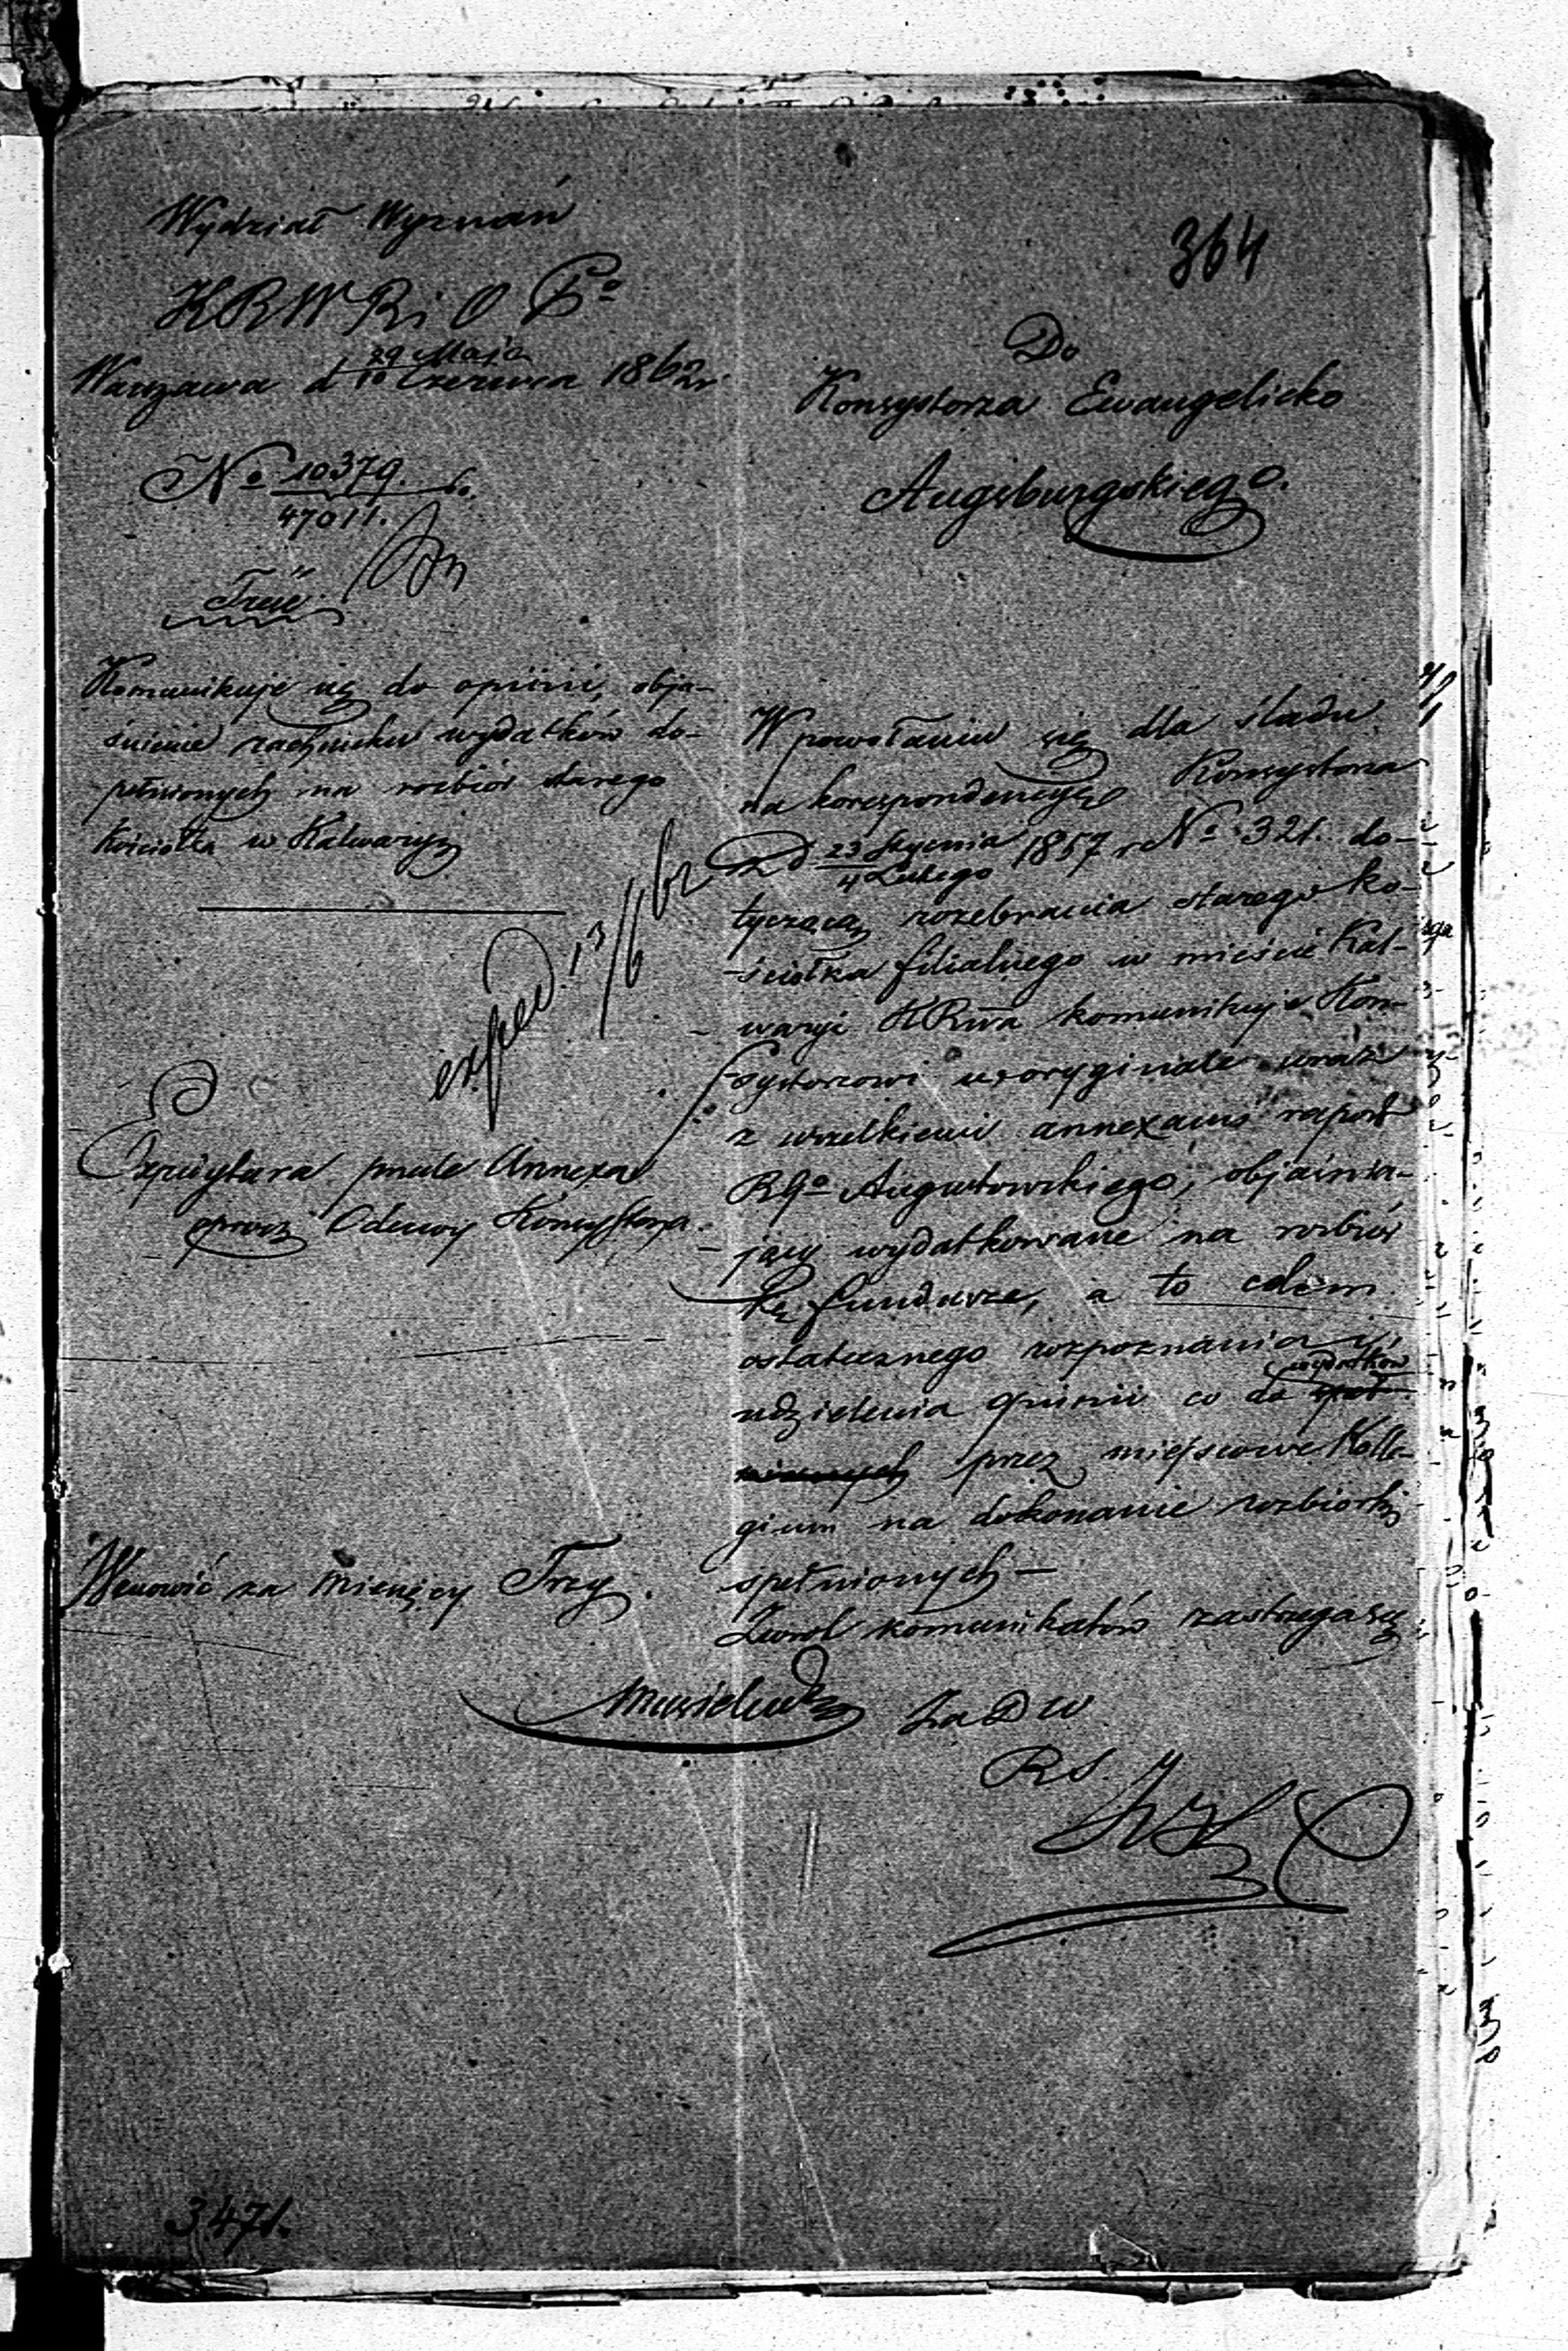 Wydział Wyznań
KRW Ri O Po
Warszawa d 29 Maja / 10 Czerwca 1862 r.
No 10379. / 47011.
Treść
Komunikuje się do opinii, obja-
śnienie rachunku wydatków do-
pełnionych na rozbiór starego
Kościołka w Kalwaryi
exped. 13/6 62
Expedytura prześle Annexa
oprócz Odezwy Konsystorza.
Wznowić za Miesięcy Trzy.
3471.
364
Do
Konsystorza Ewangelicko
Augsburgskiego.
W powołaniu się dla śladu
na korespondencyę Konsystorza
z d 23 Stycznia / 4 Lutego 1857 r No 321. do-
tyczącą rozebrania starego ko-
ściołka filialnego w mieście Kal-
waryi KRwa komunikuje Kon-
systorzowi w oryginale wraz
z wszelkiemi annexami raport
RGo Augustowskiego, objaśnia-
jący wydatkowane na rozbiór
kę fundusze, a to celem
ostatecznego rozpoznania i
udzielenia opinii co do wydatków
przez miejscowe Kolle-
gium na dokonanie rozbiórki
spełnionych —
Zwrot komunikatów zastrzega się
Za D W
R S.